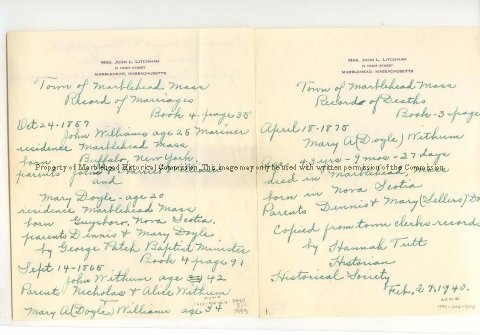 MRS. JOHN L. LITCHMAN
11 HIGH STREET
MARBLEHEAD, MASSACHUSETTS
Town of Marblehead Mass
Record of Marriages
Book 4 page 35
Oct 24-1857
John Williams age 25 Mariner
residence Marblehead Mass
born Buffalo, New York
parents
and
Mary Doyle - age 20
residence Marblehead Mass
born Guysboro, Nova Scotia
parents Dennis & Mary Doyle
by George Patch Baptist Minister
Book 4 page 91
Sept 14-1865
John Withum age 42
Parent Nicholas & Alice Withum
Mary A (Doyle) Williams age 34
MRS. JOHN L. LITCHMAN
11 HIGH STREET
MARBLEHEAD, MASSACHUSETTS
Town of Marblehead Mass
Record of Deaths
Book - 3 page
April 18-1875
Mary A (Doyle) Withum
43 yrs - 9 mos - 27 days
died in Marblehead
born in Nova Scotia
Parents Dennis & Mary (Sellers) Do
Copied from town clerks records
by Hannah Tutt
Historian
Historical Society
Feb. 27, 1940.
Property of Marblehead Historical Commission. This image may only be used with written permission of the Commission